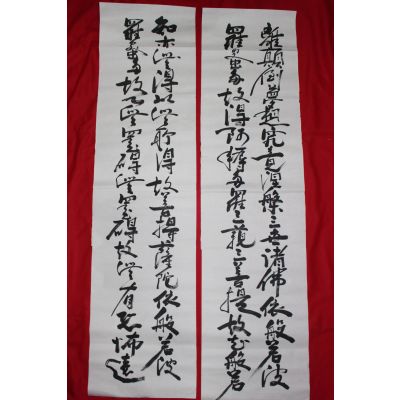 智亦無得以無所得故菩提薩陀依般若波
羅蜜多故心無罣碍無罣碍故無有恐怖遠
離顛倒夢想究竟涅槃三世諸佛依般若波
羅蜜多故得阿耨多羅三藐三菩提故知般若